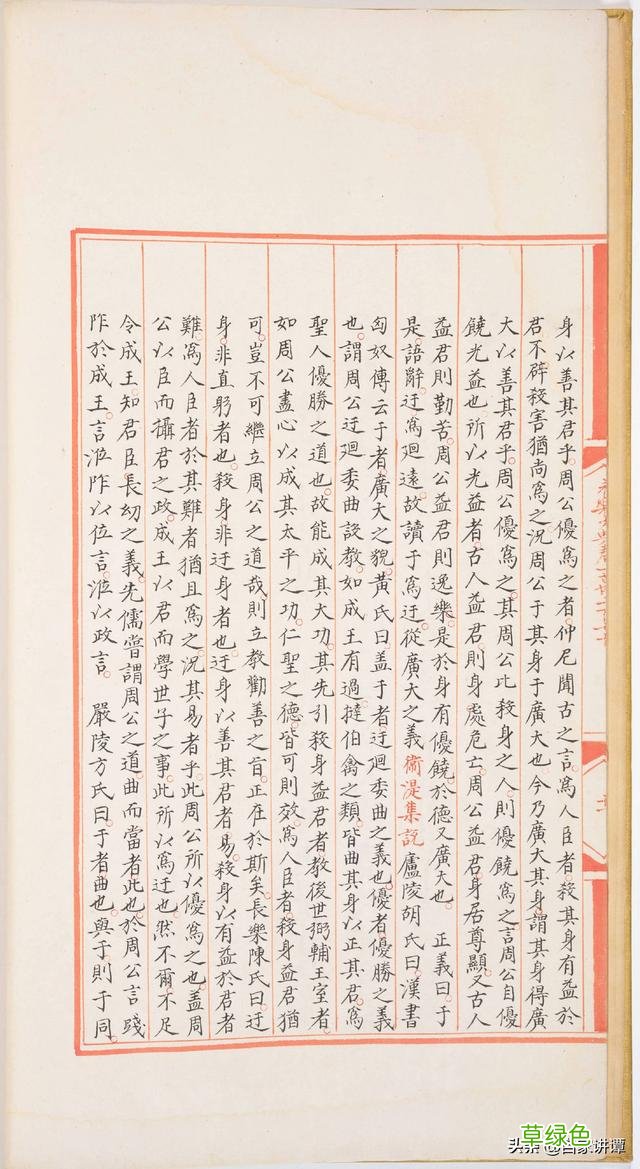 身以善其君乎。周公優爲之者。仲尼聞古之言。爲人臣者。殺其身有益於
君不辟。殺害猶尚爲之。况周公于其身于廣大也。今乃廣大其身。謂其身得廣
大以善其君乎。周公優爲之。其周公比殺身之人。則優饒爲之。言周公自優
饒光益也。所以光益者。古人益君。則身處危亡。周公益君。身居尊顯。又古人
益君則勤苦。周公益君則逸樂。是於身有優饒。於德又廣大也。 正義曰于
是語辭。迂爲迴遠。故讀于爲迂。從廣大之義 衞湜集說 廬陵胡氏曰。漢書
匈奴傳云于者。廣大之貌。黃氏曰。盖于者迂迴委曲之義也。優者。優勝之義
也。謂周公迂迴委曲設教。如成王有過。撻伯禽之類。皆曲其身以正其君。爲
聖人優勝之道也。故能成其大功。其先引殺身益君者。教後世弼輔王室者。
如周公盡心以成其太平之功。仁聖之德。皆可則效。爲人臣者。殺身益君猶
可。豈不可繼立周公之道哉。則立教勸善之旨。正在於斯矣。長樂陳氏曰。迂
身。非直躬者也。殺身。非迂身者也。迂身以善其君者易。殺身以有益於君者
難。爲人臣者。於其難者猶且爲之。况其易者乎。此周公所以優爲之也。盖周
公以臣而攝君之政。成王以君而學世子之事。此所以爲迂也。然不爾。不足
令成王。知君臣長幼之義。先儒嘗謂周公之道。曲而當者此也。於周公言踐
阼。於成王。言涖阼。以位言。涖以政言。 嚴陵方氏曰。于者曲也。與于則于同。
草绿色
头条 @百家讲谭